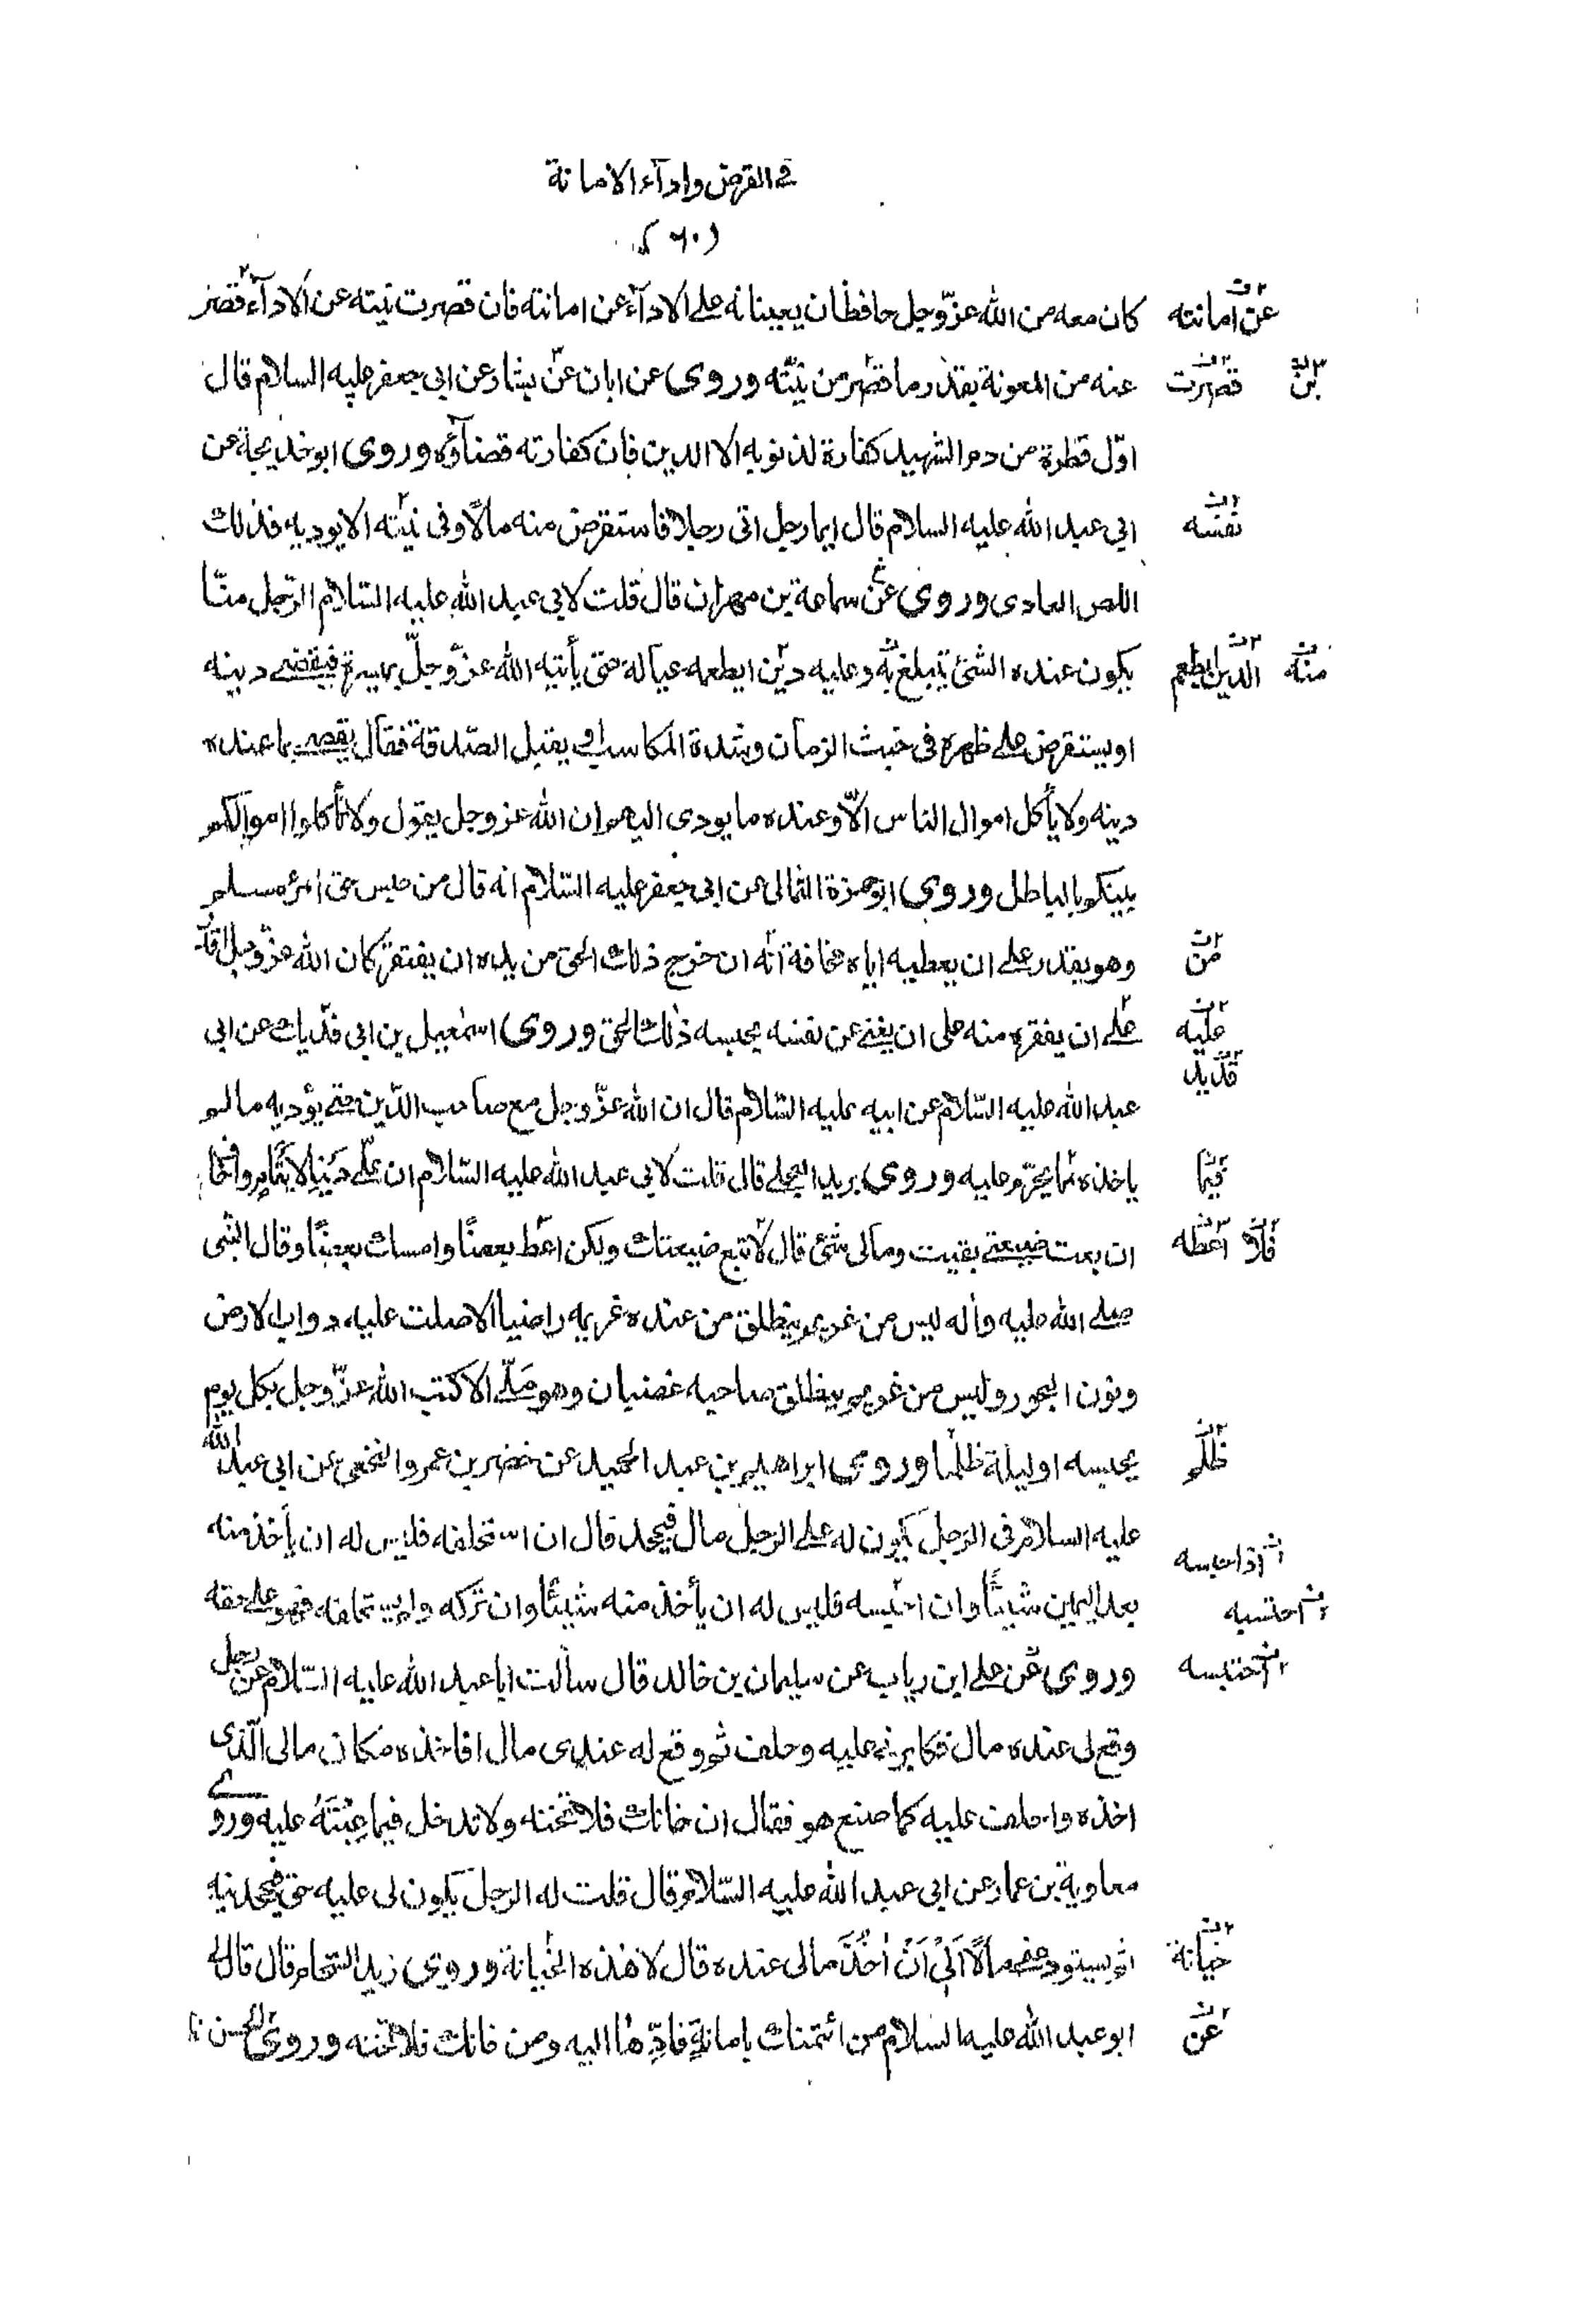 في القرض واداء الامانة
(٦٠)
كان معه من الله عزّ وجل حافظان يعينانه على الاداء عن امانته فان قصرت نيته عن الاداء قصر
عن امانته
عنه من المعونة بقدر ما قصر من نيّته وروى عن ابان عن بشار عن ابي جعفر عليه السلام قال
قصرت
بن
اوّل قطرة من دم الشهيد كفارة لذنوبه الا الدين فان كفارته قضاؤه وروى ابو خديجة عن
ابي عبد الله عليه السلام قال ايما رجل اتى رجلا فاستقرض منه مالًا وفى نيّته الا يوديه فذلك
نفسه
اللص العادى وروى عن سماعة بن مهران قال قلت لابي عبد الله عليه السّلام الرّجل منّا
يكون عنده الشئ يتبلغ به وعليه دين ايطعمه عياله حتى يأتيه الله عزّ وجلّ بميسرة فيقضى دينه
الدين ايطعم
منه
او يستقرض على ظهره فى خبث الزمان وشدة المكاسب او يقبل الصّدقة فقال يقضى بما عنده
دينه ولا يأكل اموال الناس الّا وعنده ما يودى اليهم ان الله عز وجل يقول ولا تأكلوا اموالكم
بينكم بالباطل وروى ابو حمزة الثمالى عن ابى جعفر عليه السّلام انه قال من حبس حق امرء مسلم
وهو يقدر على ان يعطيه اياه مخافة انه ان خرج ذلك الحق من يده ان يفتقر كان الله عزّ وجل اقدر
من
على ان يفقره منه على ان يغنى عن نفسه بحبسه ذلك الحق وروى اسمعيل بن ابى فديك عن ابى
عليه
قديد
عبد الله عليه السّلام عن ابيه عليه السّلام قال ان الله عزّ وجل مع صاحب الدّين حتى يؤديه ما لم
ياخذه مما يحرّم عليه وروى بريد العجلى قال قلت لابى عبد الله عليه السّلام ان علّى دينا لايتام واخاف
فيما
ان بعت ضيعتى بقيت ومالى شئ قال لا تبع ضيعتك ولكن اعط بعضًا وامسك بعضًا وقال النبى
اعطه
فلا
صلى الله عليه واله ليس من غريم ينطلق من عنده غريمه راضيا الا صلت عليه دواب الارض
ونون البحور وليس من غريم ينطلق صاحبه غضبان وهو ملّى الا كتب الله عزّ وجل بكل يوم
يحبسه او ليلة ظلما وروى ابراهيم بن عبد الحميد عن خضر بن عمرو النخعى عن ابى عبد الله
ظلم
عليه السلام فى الرجل يكون له على الرجل مال فيجحد قال ان استحلفه فليس له ان يأخذ منه
اذا حبسه
بعد اليمين شيئًا وان احبسه فليس له ان يأخذ منه شيئًا وان تركه ولم يستحلفه فهو على حقه
احتسبه
وروى عن على ابن رياب عن سليمان بن خالد قال سألت ابا عبد الله عليه السّلام عن رجل
احتبسه
وقع لى عنده مال فكابرنى عليه وحلف ثم وقع له عندى مال افاخذه مكان مالى الّذى
اخذه واحلف عليه كما صنع هو فقال ان خانك فلا تخنه ولا تدخل فيما عبته عليه وروى
معاوية بن عمار عن ابى عبد الله عليه السّلام قال قلت له الرجل يكون لى عليه حق فيجحدنيه
ثم يستودعنى مالًا الى ان اخذ مالى عنده قال لا هذه الخيانة وروى زيد الشحام قال قال لى
خيانة
ابو عبد الله عليه السلام من ائتمنك بامانة فادّها اليه ومن خانك فلا تخنه وروى الحسن
عن